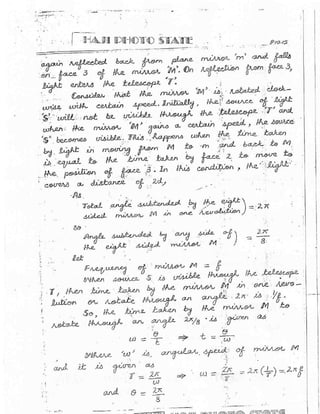 HAJI PHOTO STATE
again reflected back from plane mirror 'm' and falls
on face 3 of the mirror 'M'. On reflection from face 3,
light enters the telescope 'T'.
Consider that the mirror 'M' is rotated clock-
wise with certain speed. Initially, the source of light
'S' will not be visible through the telescope 'T' and
when the mirror 'M' gains a certain speed, the source
'S' becomes visible. This happens when the time taken
by light in moving from M to m and back to M
is equal to the time taken by face 2 to move to
the position of face 3. In this condition, the light
covers a distance of 2d,
As
Total angle subtended by the eight
sided mirror M in one revolution) = 2π
So
Angle subtended by any side of
the eight sided mirror M ) = 2π/8
Let
Frequency of mirror M = f
When source S is visible through the telescope
T, then time taken by the mirror M in one revo-
lution or rotate through an angle 2π is 1/f.
So, the time taken by the mirror M to
rotate through an angle 2π/8 is given as
ω = θ/t ⇒ t = θ/ω
Where 'ω' is angular speed of mirror M
and it is given as
T = 2π/ω ⇒ ω = 2π/T = 2π(1/T) = 2πf
and θ = 2π/8